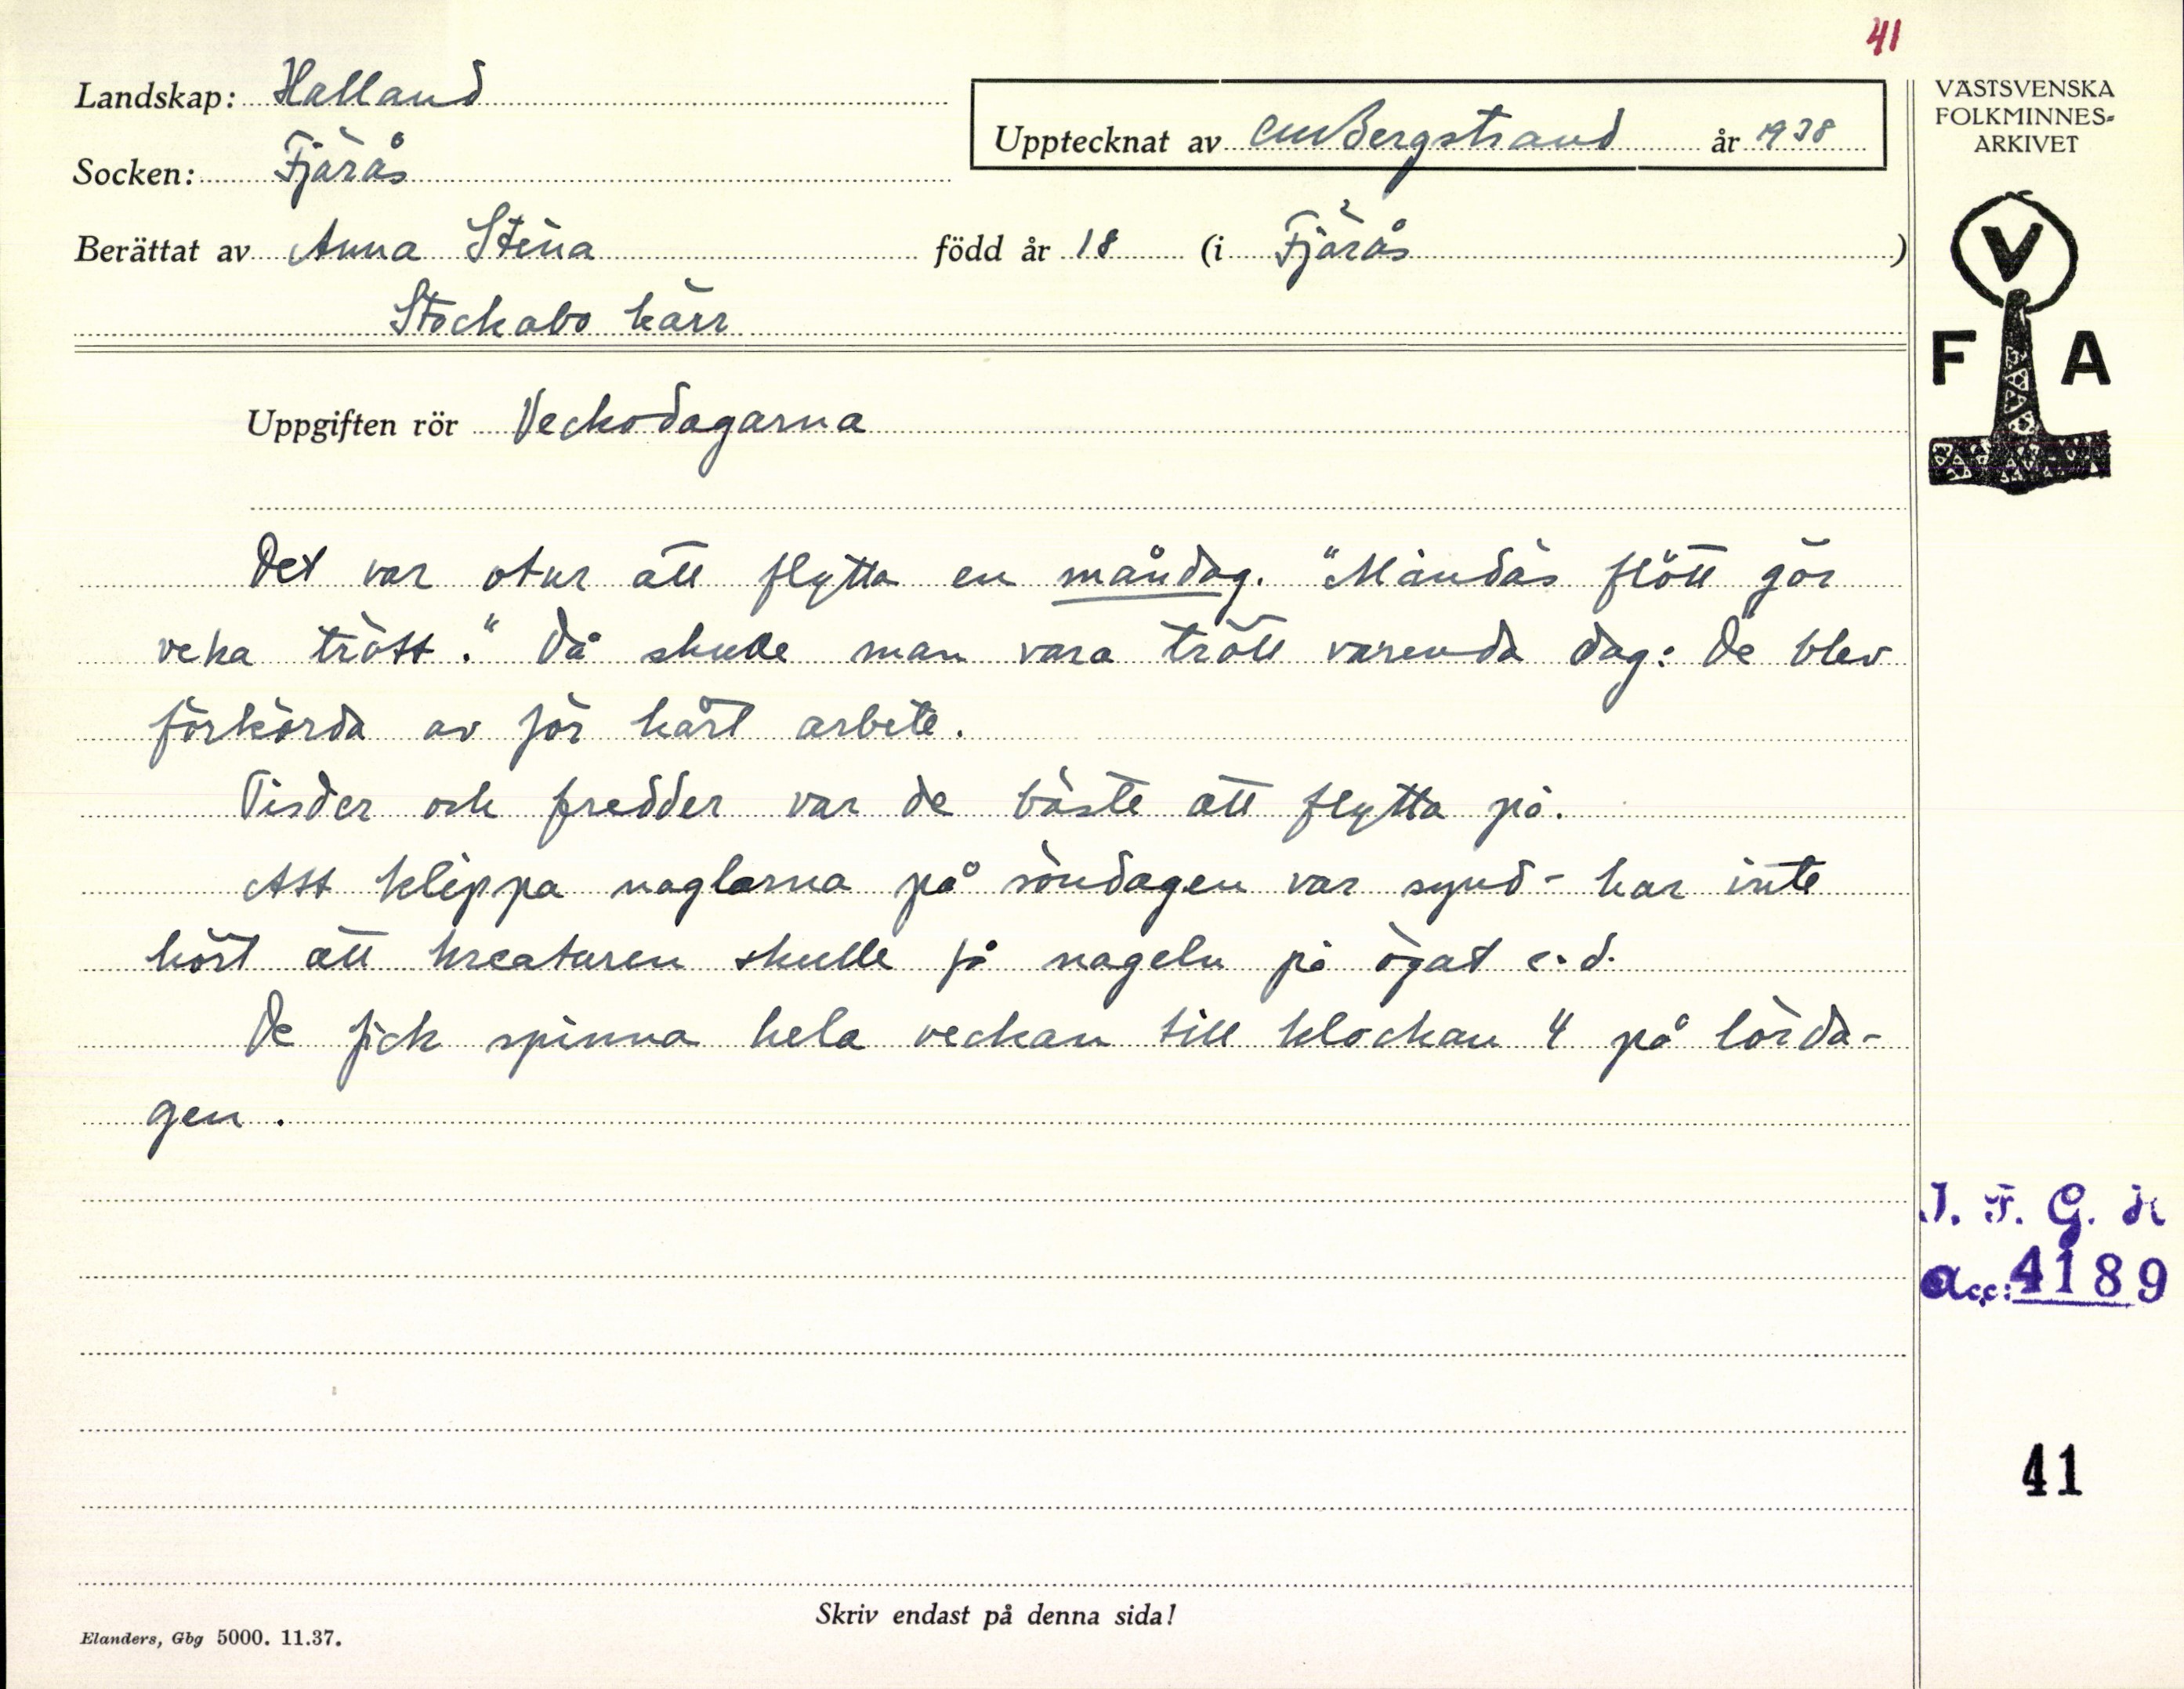 41
Landskap: Halland
Socken: Fjärås
Upptecknat av CMBergstrand år 1938
Berättat av Anna Stina född år 18 (i Fjärås)
Stockabo kärr
VÄSTSVENSKA
FOLKMINNES-
ARKIVET
V
F A
Uppgiften rör Veckodagarna
Det var otur att flytta en måndag. "Måndäs flött gör
veka trött." Då skulle man vara trött varenda dag: De blev
förkörda av för hårt arbete.
Tisder och fredder var de bäste att flytta på.
Att klippa naglarna på söndagen var synd - har inte
hört att kreaturen skulle få nageln på ögat e.d.
De fick spinna hela veckan till klockan 4 på lörda-
gen.
I. F. G. 
acc: 4189
41
Skriv endast på denna sida!
Elanders, Gbg 5000. 11.37.